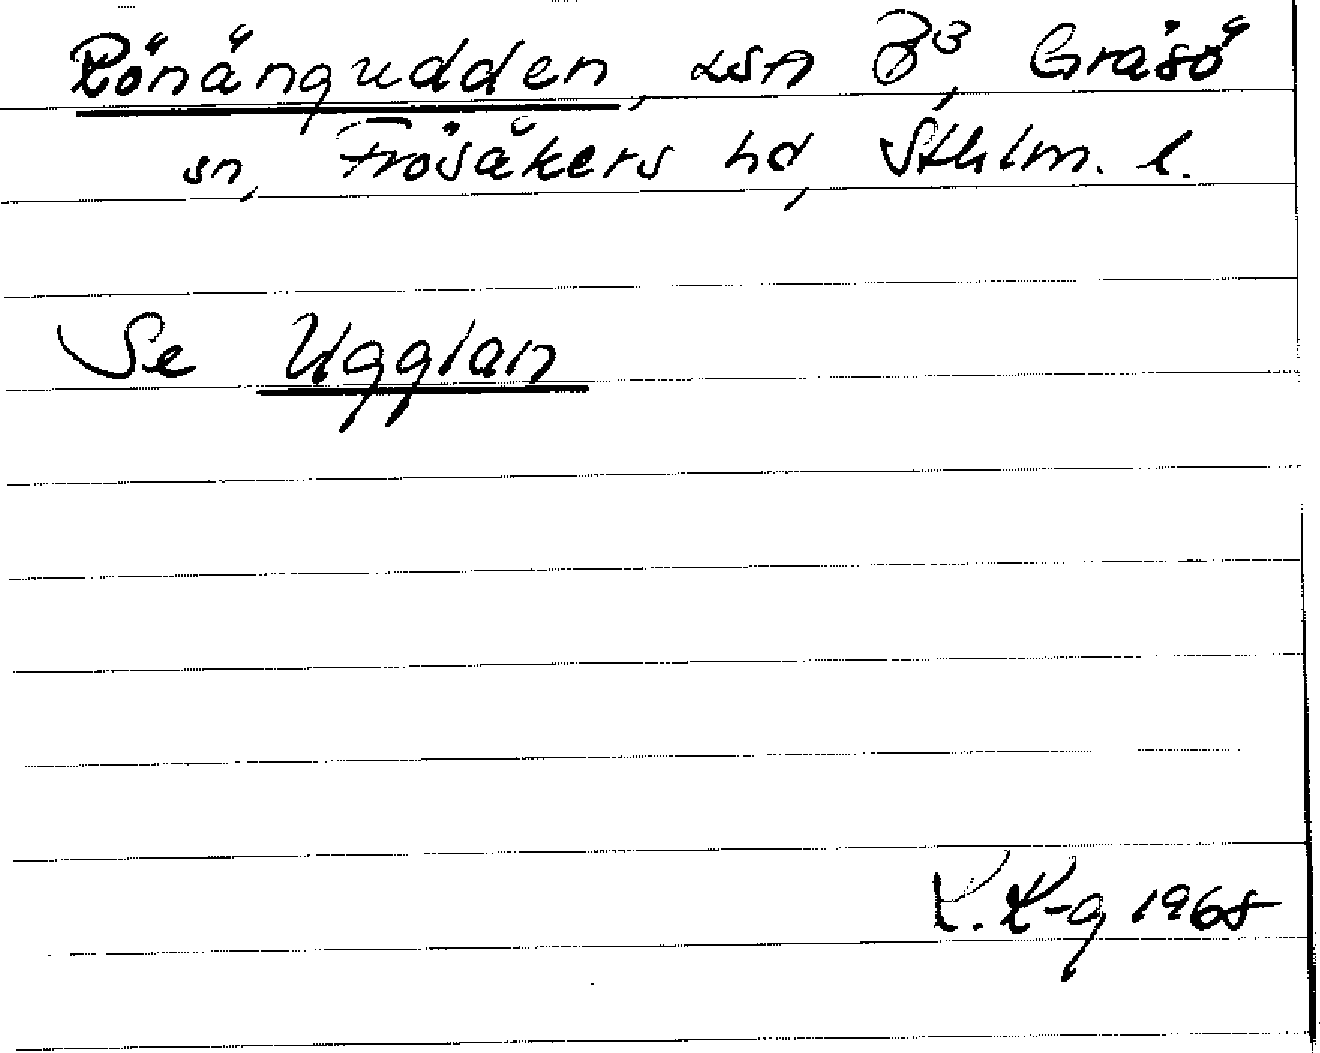 Rönängudden, usn B³, Gräsö
sn, Frösåkers hd, Sthlm. l.
Se Ugglan
K. K-g 1968